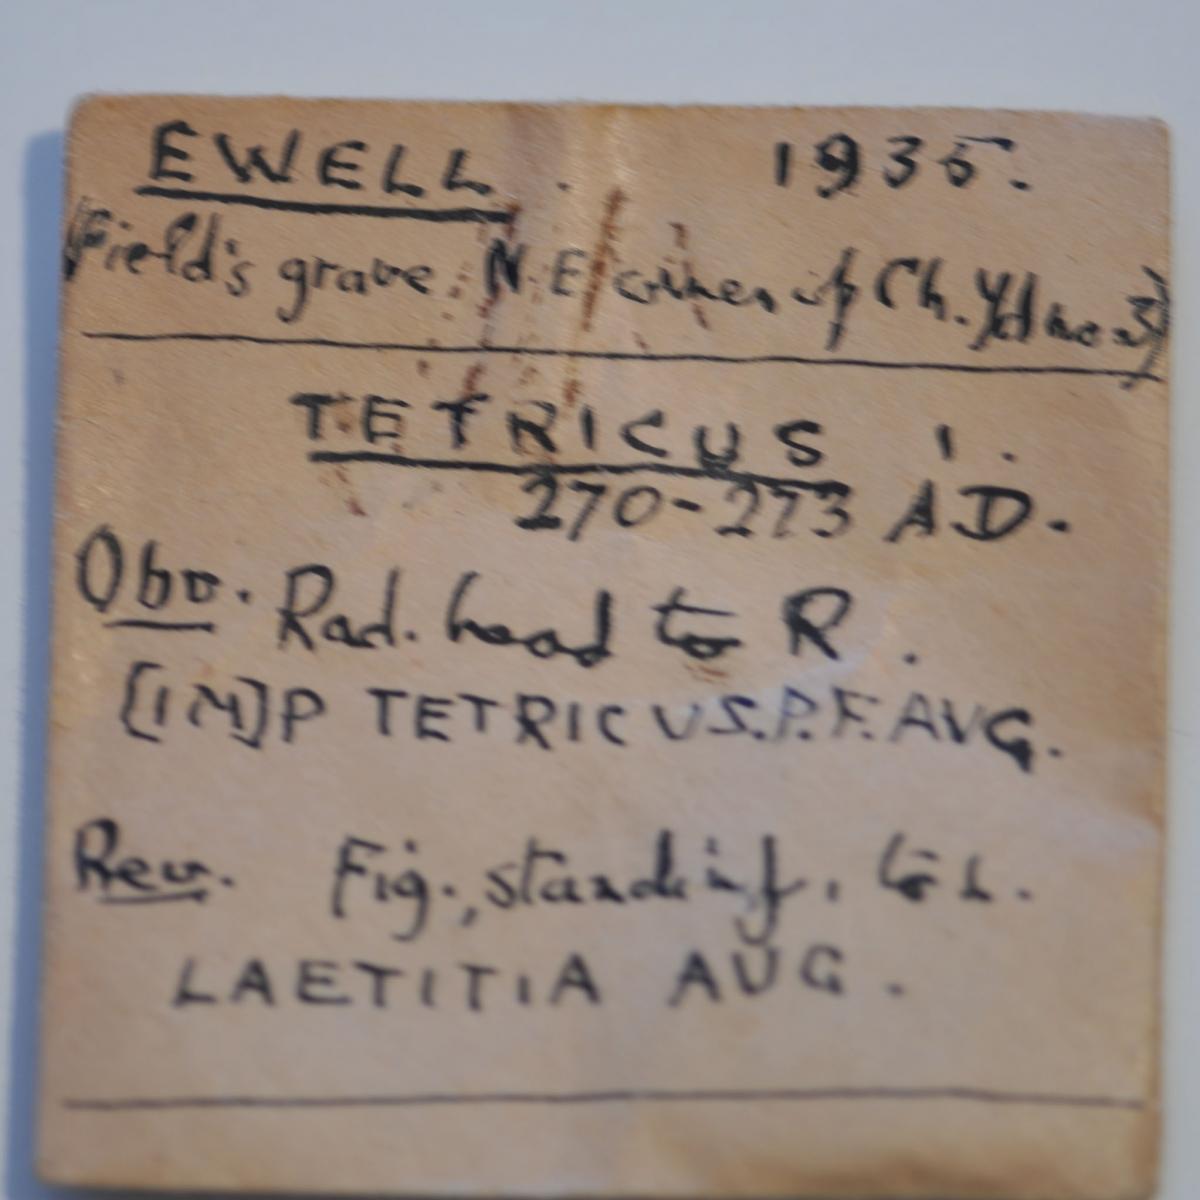 EWELL. 1935.
(Field's grave. N.E. corner of Ch. Yd no. 3)
TETRICUS I.
270-273 AD.
Obv. Rad. head to R.
[IM]P TETRICUS.P.F.AVG.
Rev. Fig., standing, to L.
LAETITIA AUG.